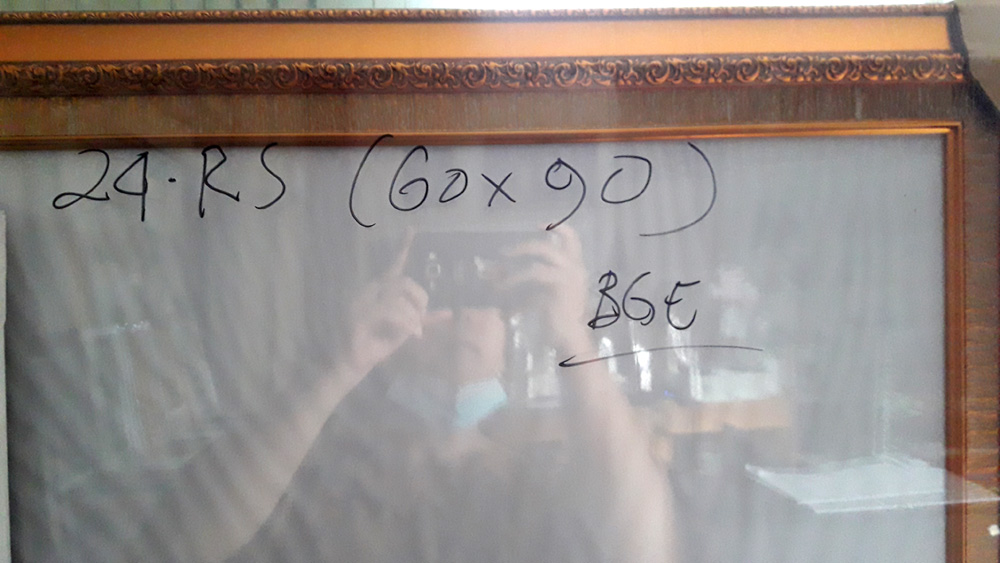 24.RS (60x90)
BGE